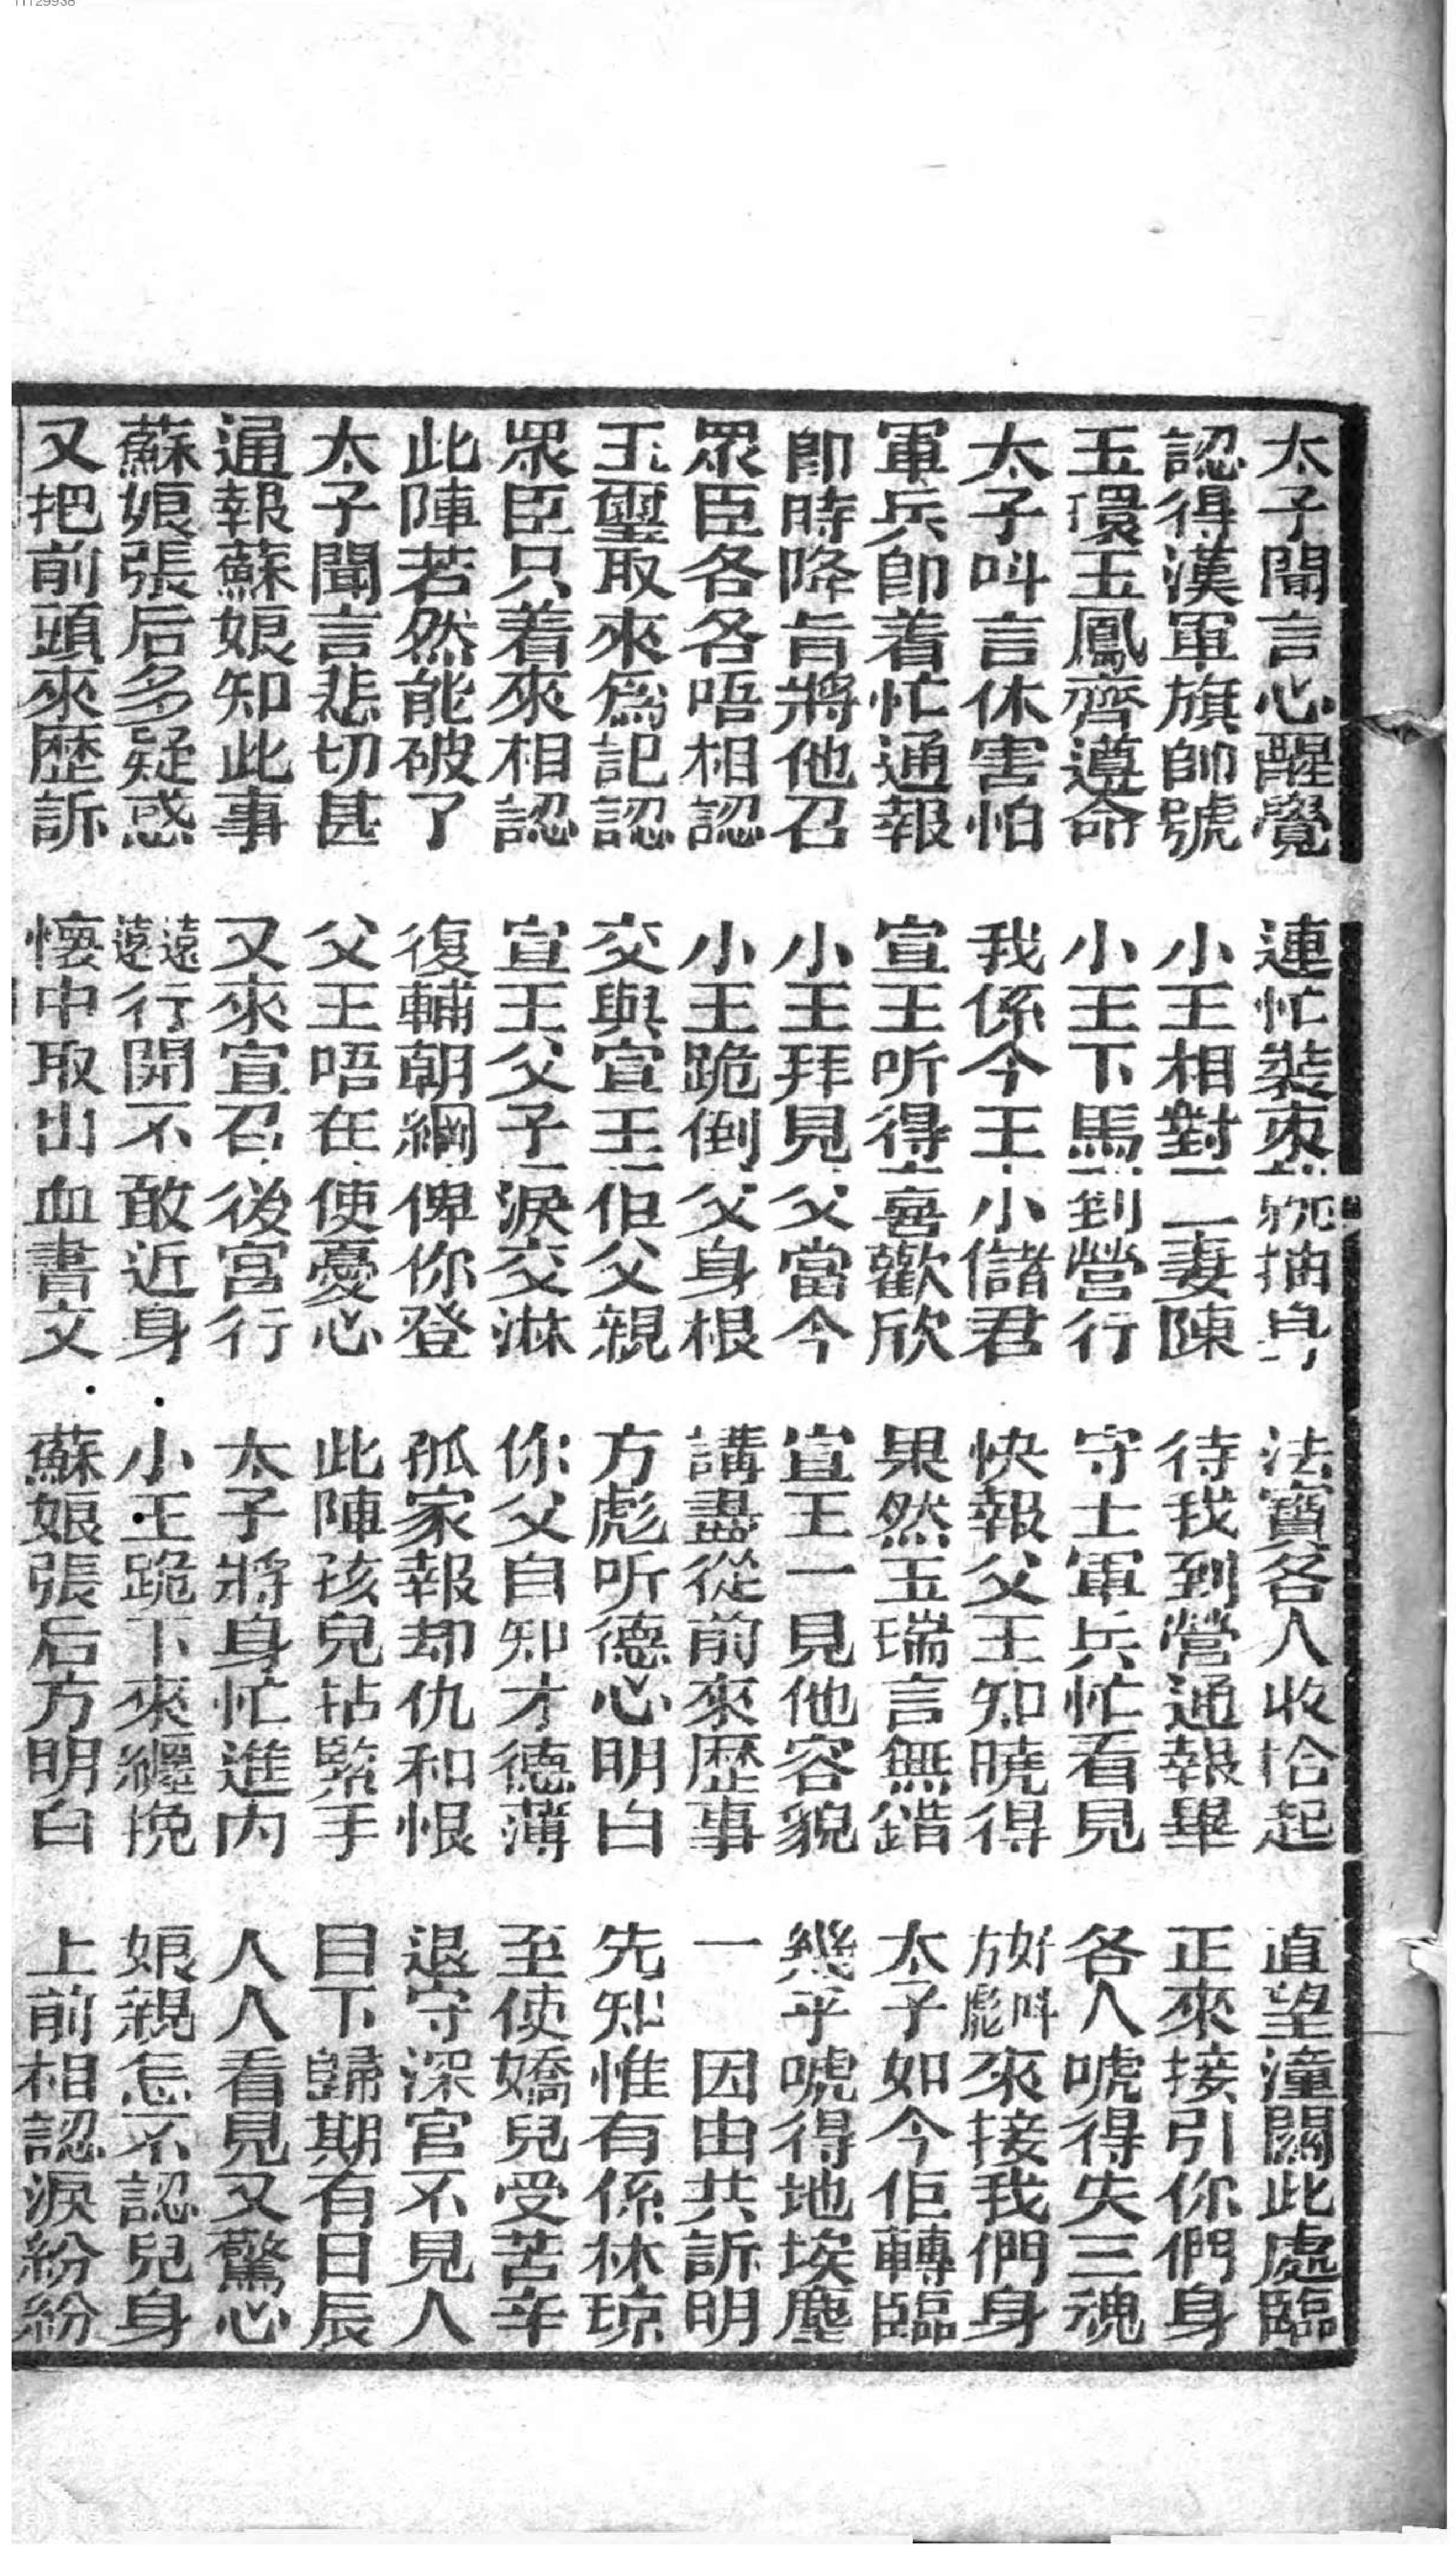 11129938
太子聞言心醒覺 連忙裝束就抽身 法寶各人收拾起 直望潼關此處臨
認得漢軍旗帥號 小王相對二妻陳 待我到營通報畢 正來接引你們身
玉環玉鳳齊遵命 小王下馬到營行 守士軍兵忙看見 各人唬得失三魂
太子呌言休害怕 我係今王小儲君 快報父王知曉得 好呌方彪來接我們身
軍兵卽着忙通報 宣王听得喜歡欣 果然玉瑞言無錯 太子如今佢轉臨
卽時降旨將他召 小王拜見父當今 宣王一見他容貌 幾乎唬得地埃塵
眾臣各各唔相認 小王跪倒父身根 講盡從前來歷事 一因由共訴明
玉璽取來爲記認 交與宣王佢父親 方彪听德心明白 先知惟有係林琼
眾臣只着來相認 宣王父子淚交淋 你父自知才德薄 至使嬌兒受苦辛
此陣若然能破了 復輔朝綱俾你登 孤家報却仇和恨 退守深宮不見人
太子聞言悲切甚 父王唔在使憂心 此陣孩兒拈緊手 目下歸期有日辰
通報蘇娘知此事 又來宣召後宮行 太子將身忙進內 人人看見又驚心
蘇娘張后多疑惑 遠遠行開不敢近身 小王跪下來纒挽 娘親怎不認兒身
又把前頭來歷訴 懷中取出血書文 蘇娘張后方明白 上前相認淚紛紛